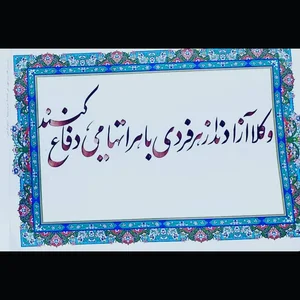 وکلا آزادند از هر فردی با هر اتهامی دفاع کنند